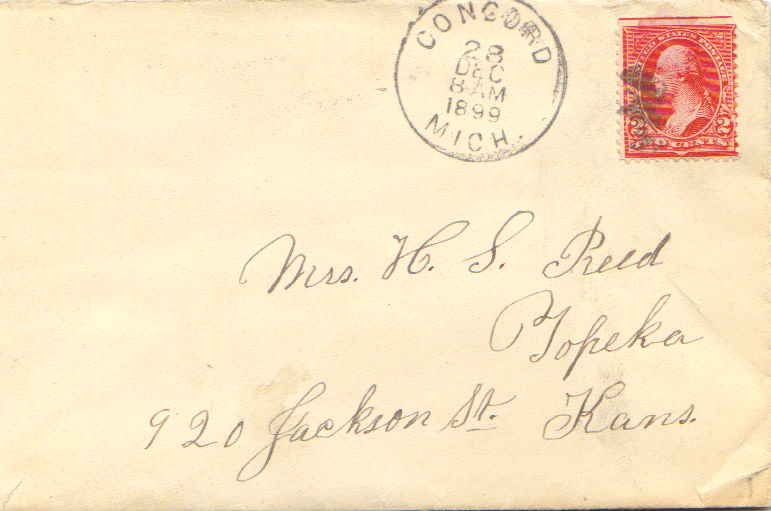 CONCORD
28
DEC
8-AM
1899
MICH.
UNITED STATES POSTAGE
2 TWO CENTS 2
Mrs. H. S. Reed
Topeka
920 Jackson St. Kans.